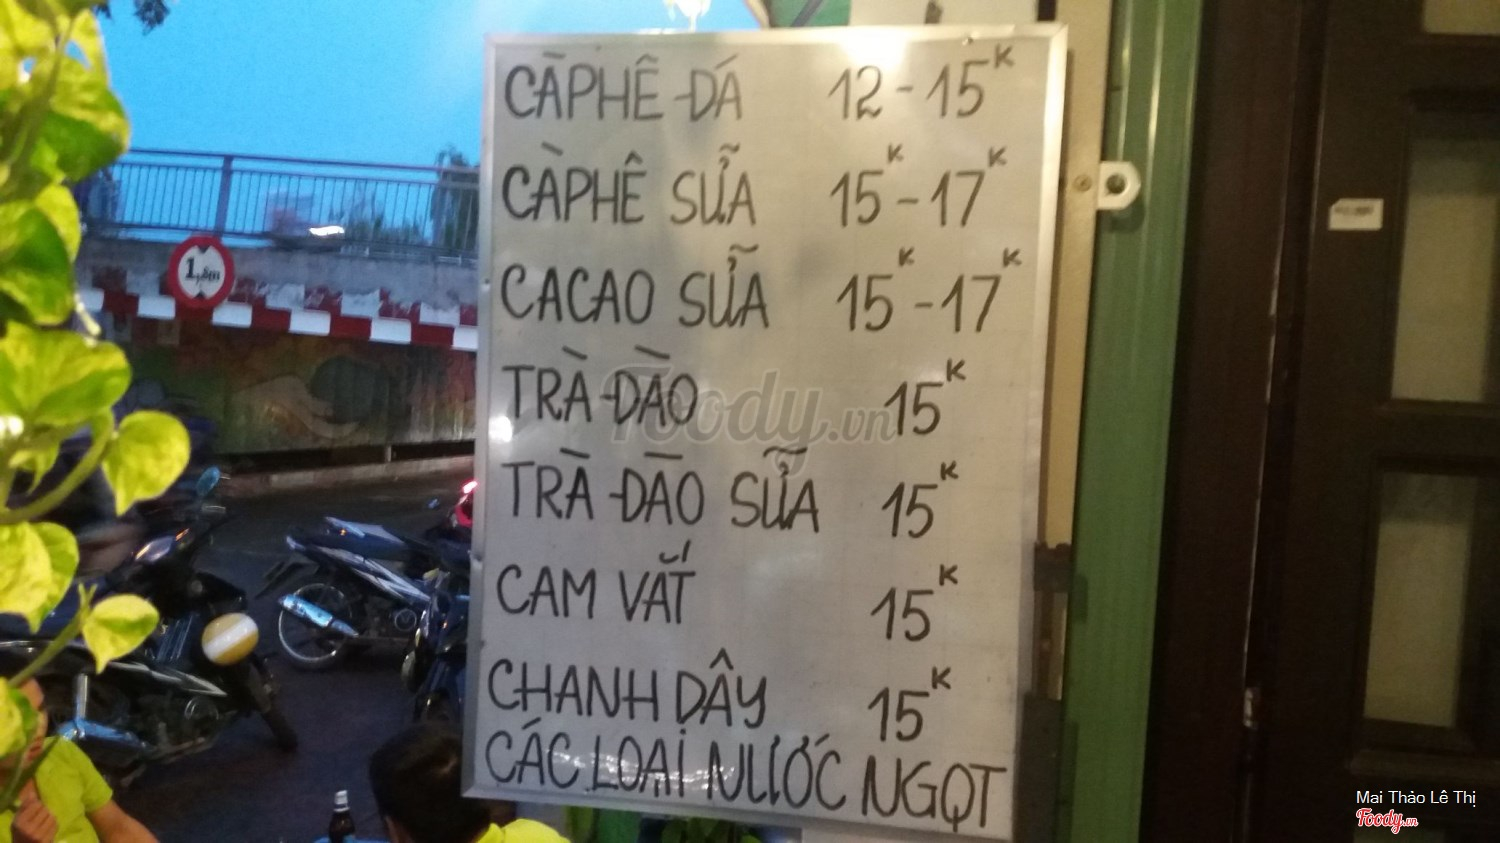 CÀPHÊ ĐÁ 12 - 15K
CÀPHÊ SỮA 15K - 17K
CACAO SỮA 15K - 17K
TRÀ ĐÀO 15K
TRÀ ĐÀO SỮA 15K
CAM VẮT 15K
CHANH DÂY 15K
CÁC LOẠI NƯỚC NGỌT
1,8m
Foody.vn
Mai Thảo Lê Thị
Foody.vn